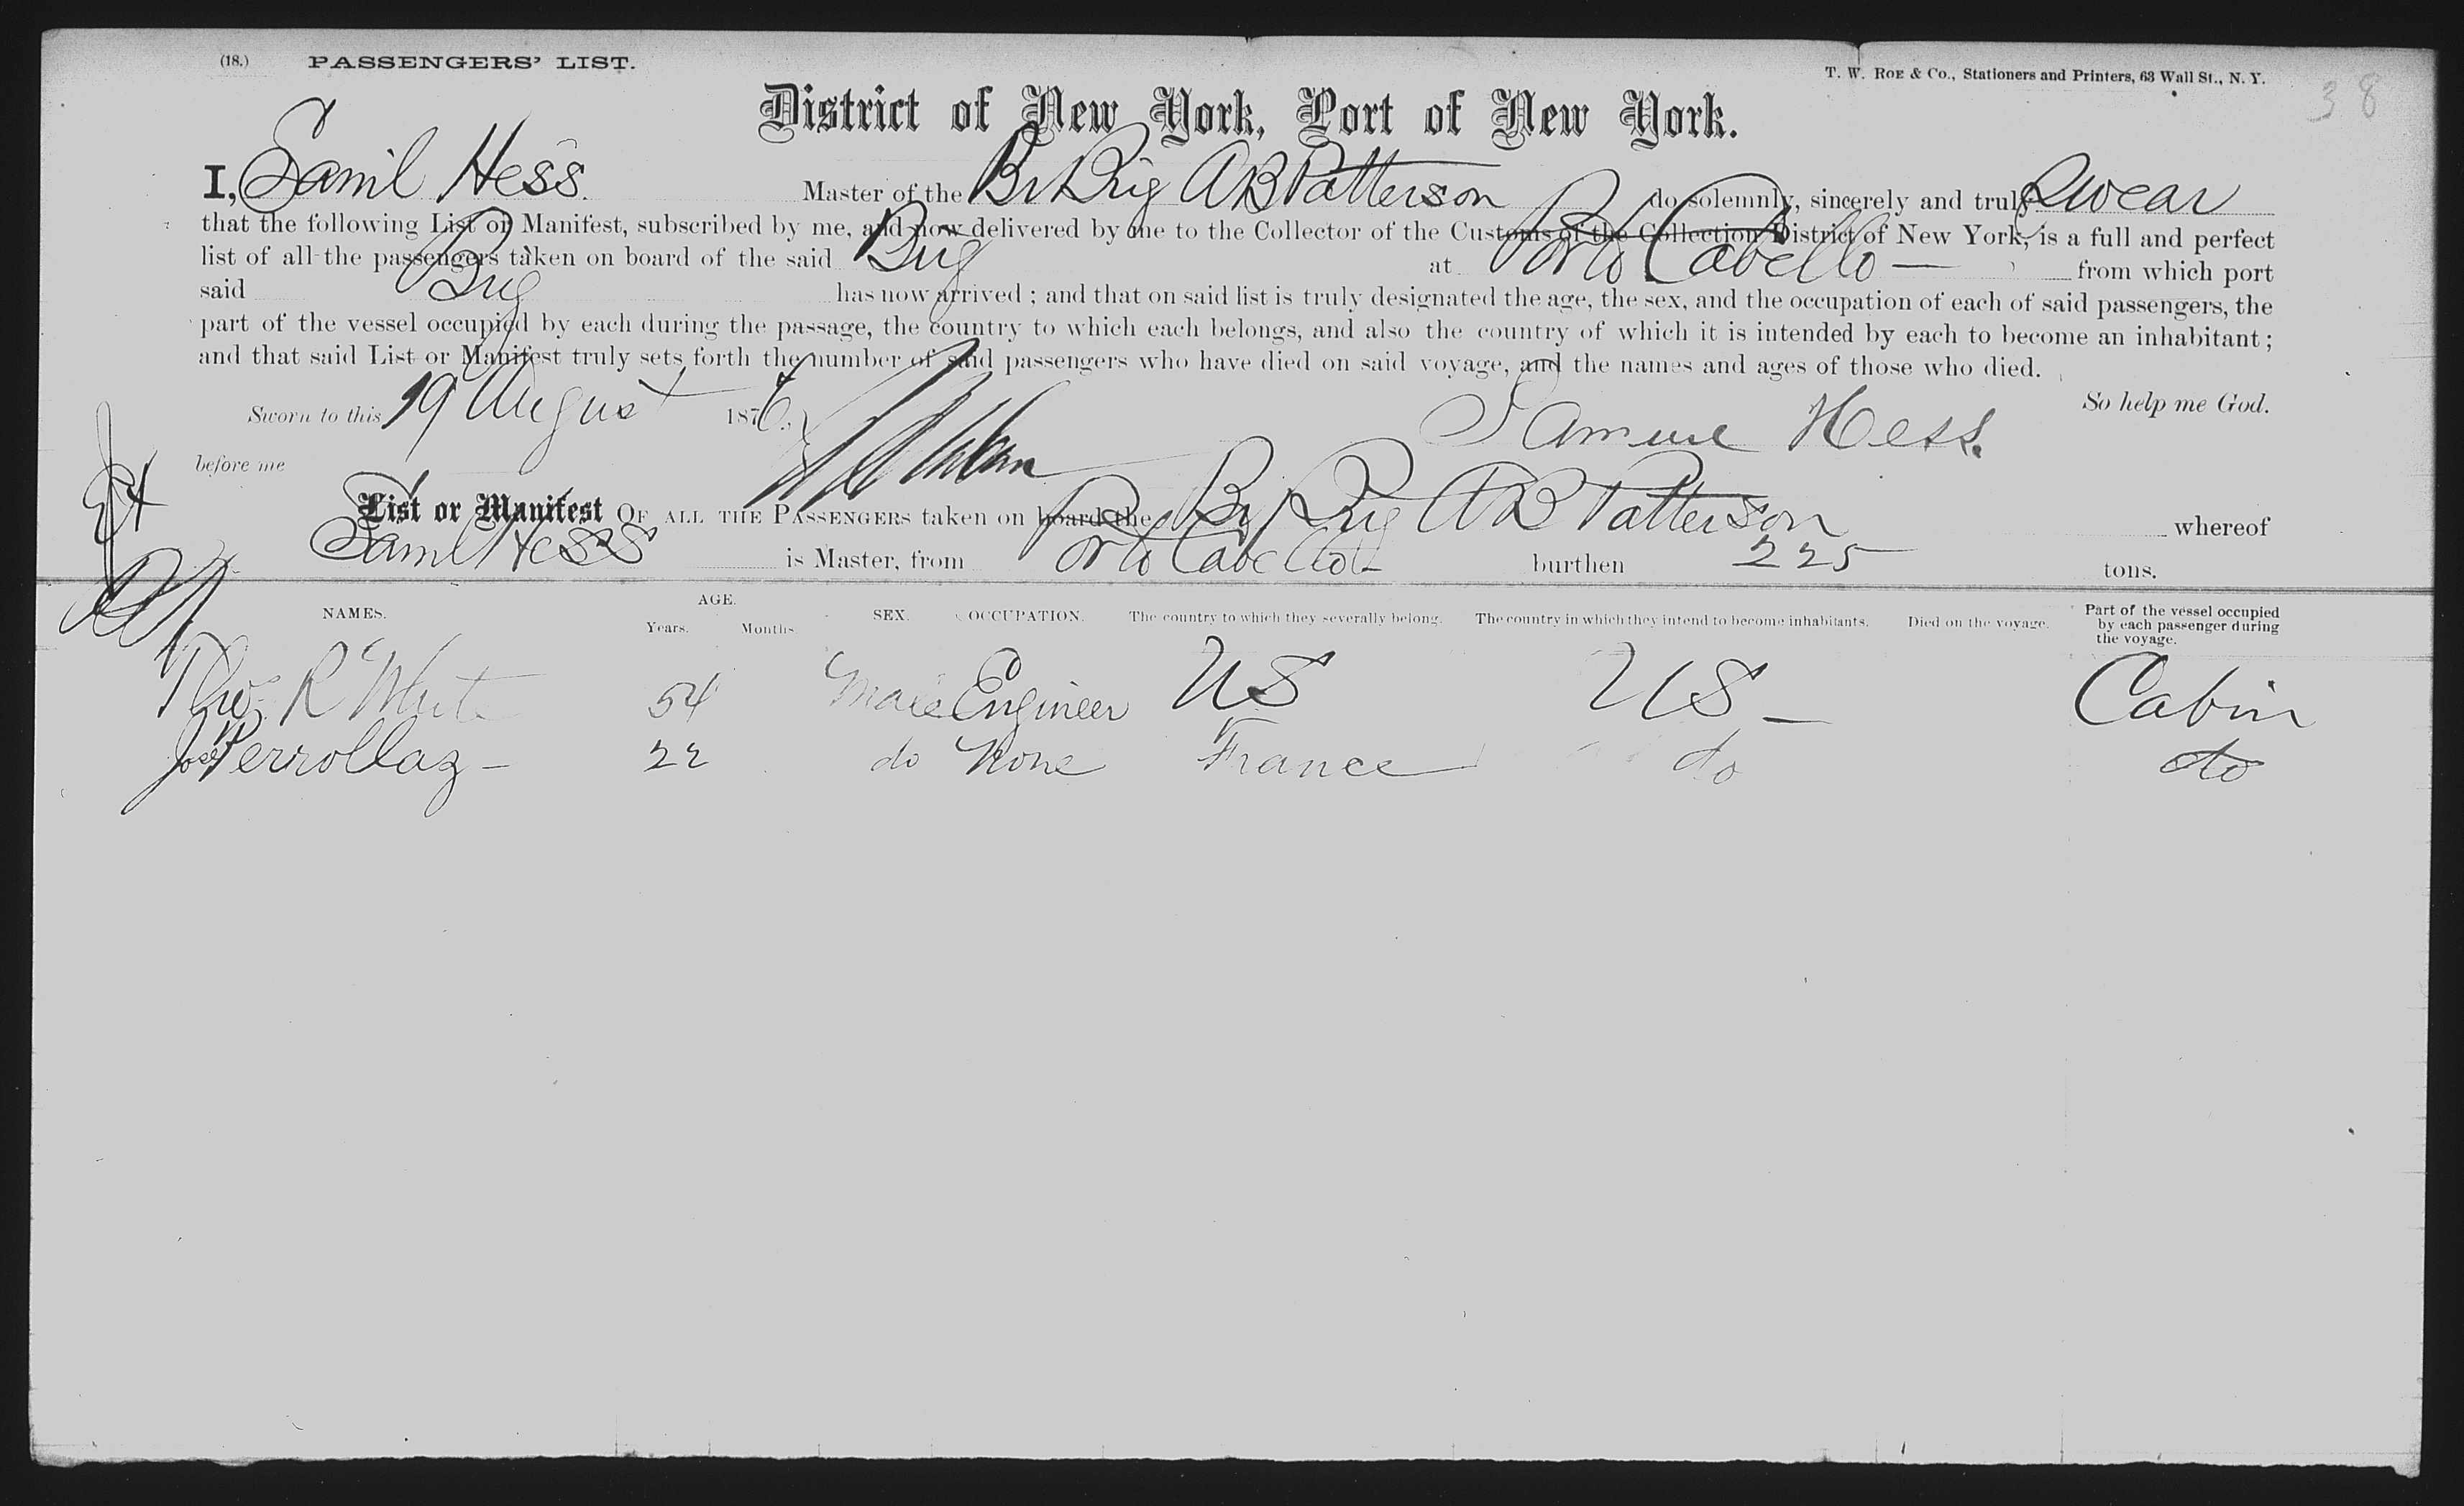 (18.) PASSENGERS' LIST.
T. W. ROE & CO., Stationers and Printers, 63 Wall St., N. Y.
38
District of New York, Port of New York.
I, Saml Hess. Master of the Br Brig A B Patterson do solemnly, sincerely and truly Swear
that the following List or Manifest, subscribed by me, and now delivered by me to the Collector of the Customs of the Collection District of New York, is a full and perfect
list of all the passengers taken on board of the said Brig at Porto Cabello — from which port
said Brig has now arrived ; and that on said list is truly designated the age, the sex, and the occupation of each of said passengers, the
part of the vessel occupied by each during the passage, the country to which each belongs, and also the country of which it is intended by each to become an inhabitant ;
and that said List or Manifest truly sets forth the number of said passengers who have died on said voyage, and the names and ages of those who died.
Sworn to this 19 August 1876. So help me God.
Samuel Hess.
before me
List or Manifest OF ALL THE PASSENGERS taken on board the Br Brig A B Patterson whereof
Saml Hess is Master, from Porto Cabello burthen 225 tons.
NAMES. AGE. Years. Months. SEX. OCCUPATION. The country to which they severally belong. The country in which they intend to become inhabitants. Died on the voyage. Part of the vessel occupied by each passenger during the voyage.
R White 54 Male Engineer US US — Cabin
Perrollaz — 22 do None France do do